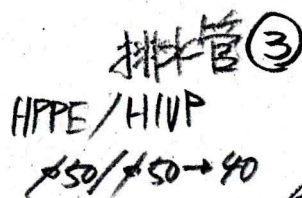 排水管③
HPPE/HIVP
φ50/φ50→40